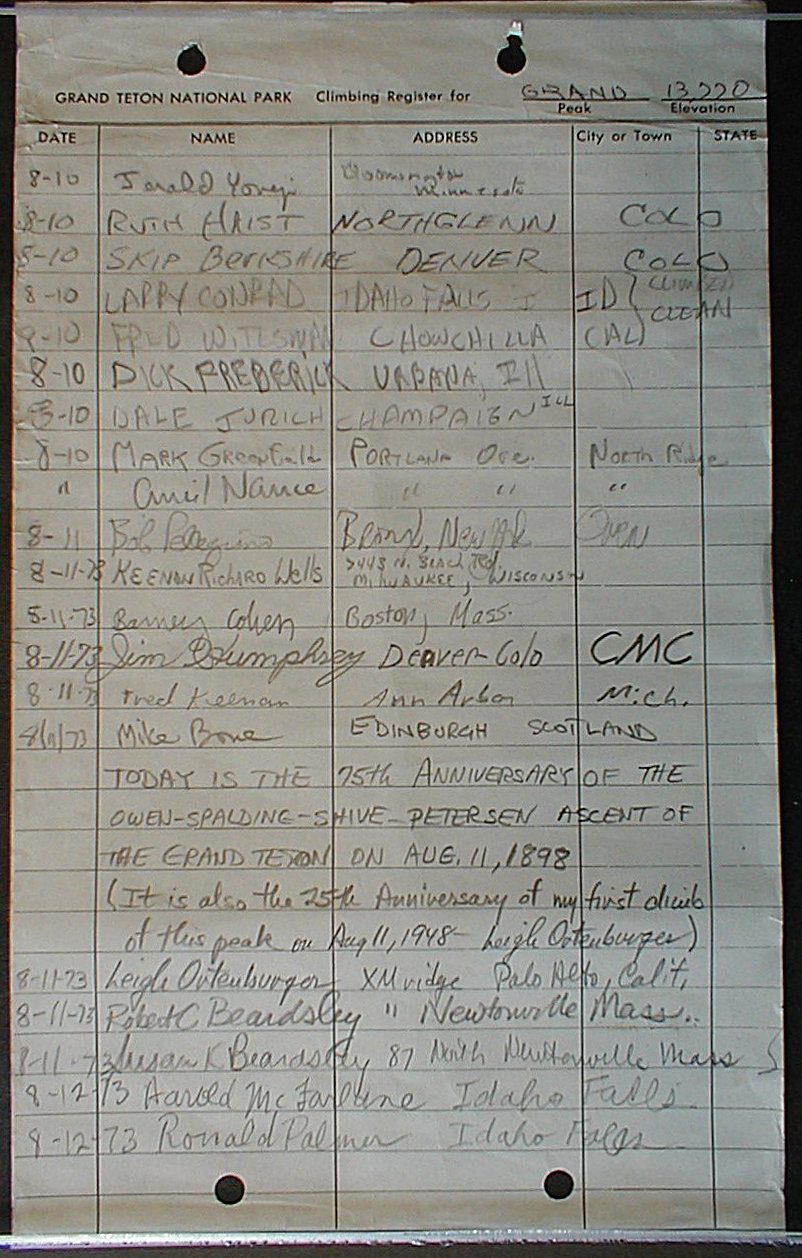 GRAND TETON NATIONAL PARK Climbing Register for GRAND 13,770
Peak Elevation
DATE NAME ADDRESS City or Town STATE
8-10 Jerald Bloomington Minnesota
8-10 RUTH HAIST NORTHGLENN COLO
8-10 SKIP BERKSHIRE DENVER COLO
8-10 LARRY CONRAD IDAHO FALLS ID CLIMBED
CLEAN
8-10 FRED CHOWCHILLA CAL
8-10 DICK FREDERICK URBANA, Ill
8-10 DALE JURICH CHAMPAIGN ILL
8-10 MARK GREENFIELD PORTLAND Ore. North Ridge
" Ancil Nance " " "
8-11 Bob Pellegrino Bronx, New York OVEN
8-11-73 KEENAN RICHARD Wells N. BEACH Rd.
MILWAUKEE, WISCONSIN
8-11-73 Barney Cohen Boston, Mass.
8-11-73 Jim Humphrey Denver Colo CMC
8-11-73 Fred Keenan Ann Arbor Mich.
8/11/73 Mike Bone EDINBURGH SCOTLAND
TODAY IS THE 75th ANNIVERSARY OF THE
OWEN-SPALDING-SHIVE-PETERSEN ASCENT OF
THE GRAND TETON ON AUG. 11, 1898
(It is also the 25th Anniversary of my first climb
of this peak on Aug 11, 1948 - Leigh Ortenburger)
8-11-73 Leigh Ortenburger XM ridge Palo Alto, Calif.
8-11-73 Robert C Beardsley " Newtonville Mass..
8-11-73 Susan K Beardsley 87 North Newtonville Mass
8-12-73 Harold McFarlane Idaho Falls
8-12-73 Ronald Palmer Idaho Falls